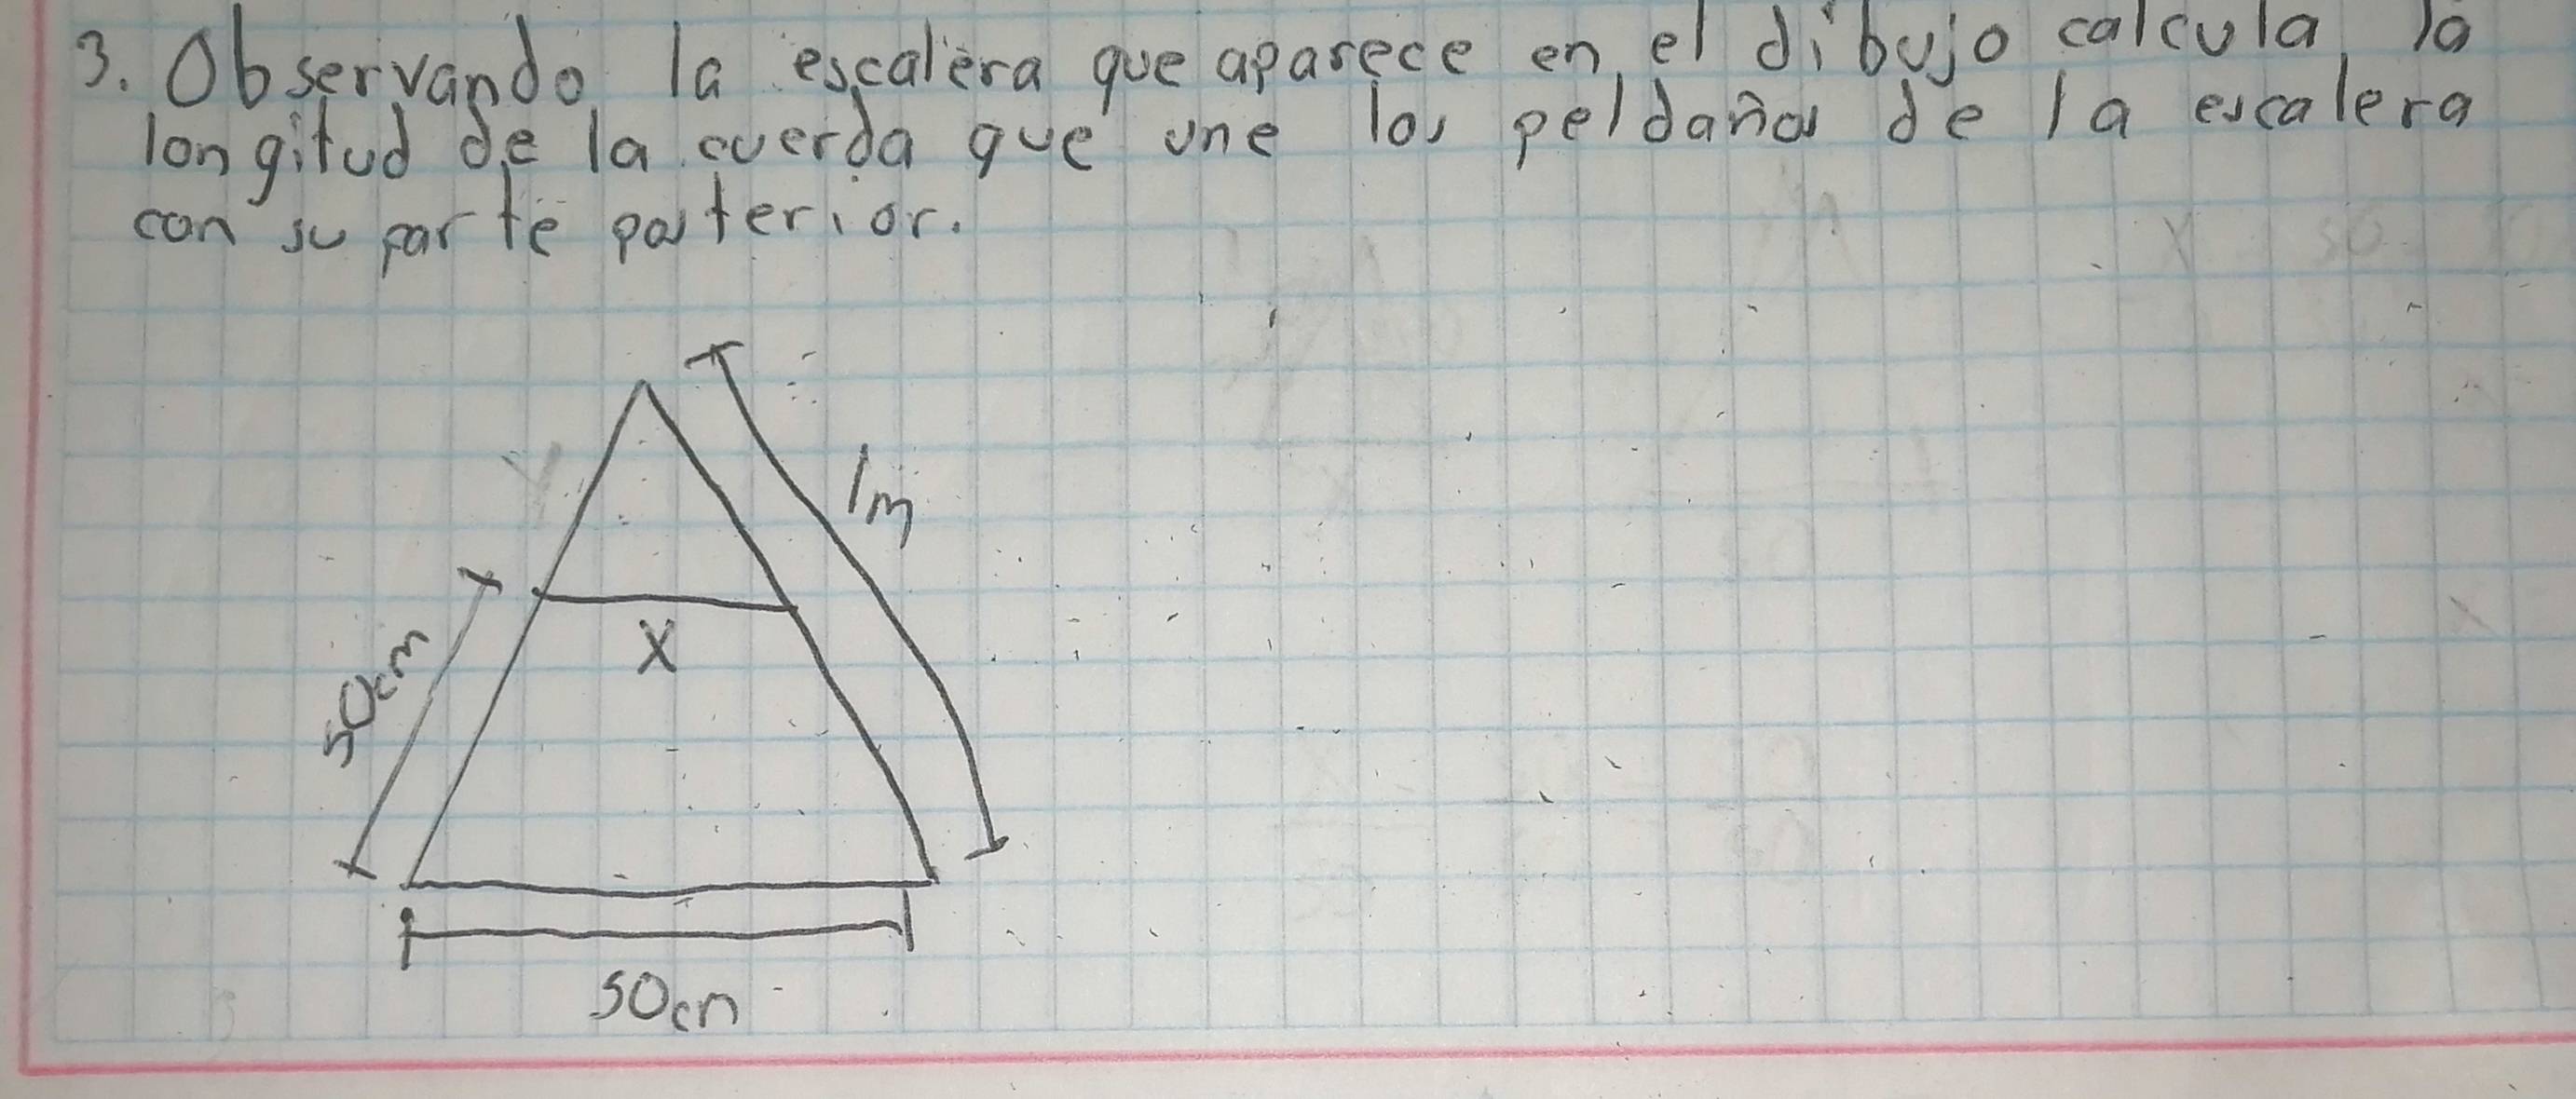 3. Observando la escalera que aparece en el dibujo calcula la
longitud de la cuerda que une los peldaños de la escalera
con su parte posterior.
1m
50cm
X
50cm